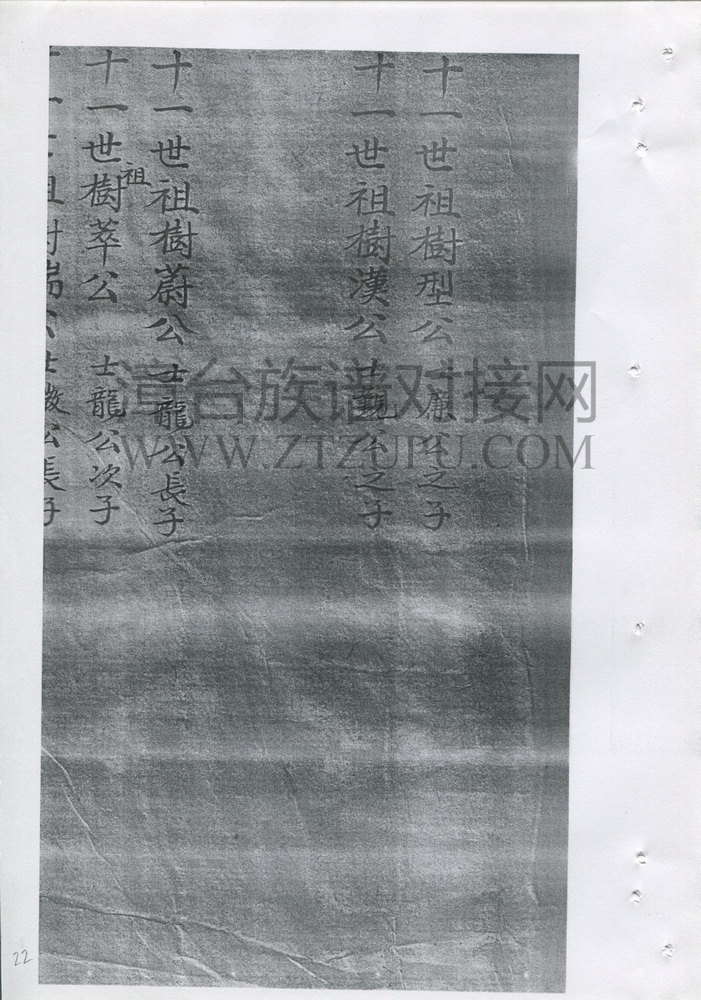 十一世祖樹型公 士廉公之子
十一世祖樹漢公 士觀公之子
十一世祖樹蔚公 士龍公長子
十一世祖樹萃公 士龍公次子
十一世祖樹 公士 公長子
漳台族谱对接网
WWW.ZTZUPU.COM
22